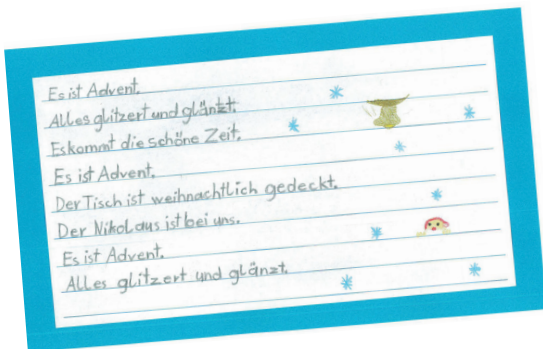 Es ist Advent.
Alles glitzert und glänzt.
Es kommt die schöne Zeit.
Es ist Advent.
Der Tisch ist weihnachtlich gedeckt.
Der Nikolaus ist bei uns.
Es ist Advent.
Alles glitzert und glänzt.